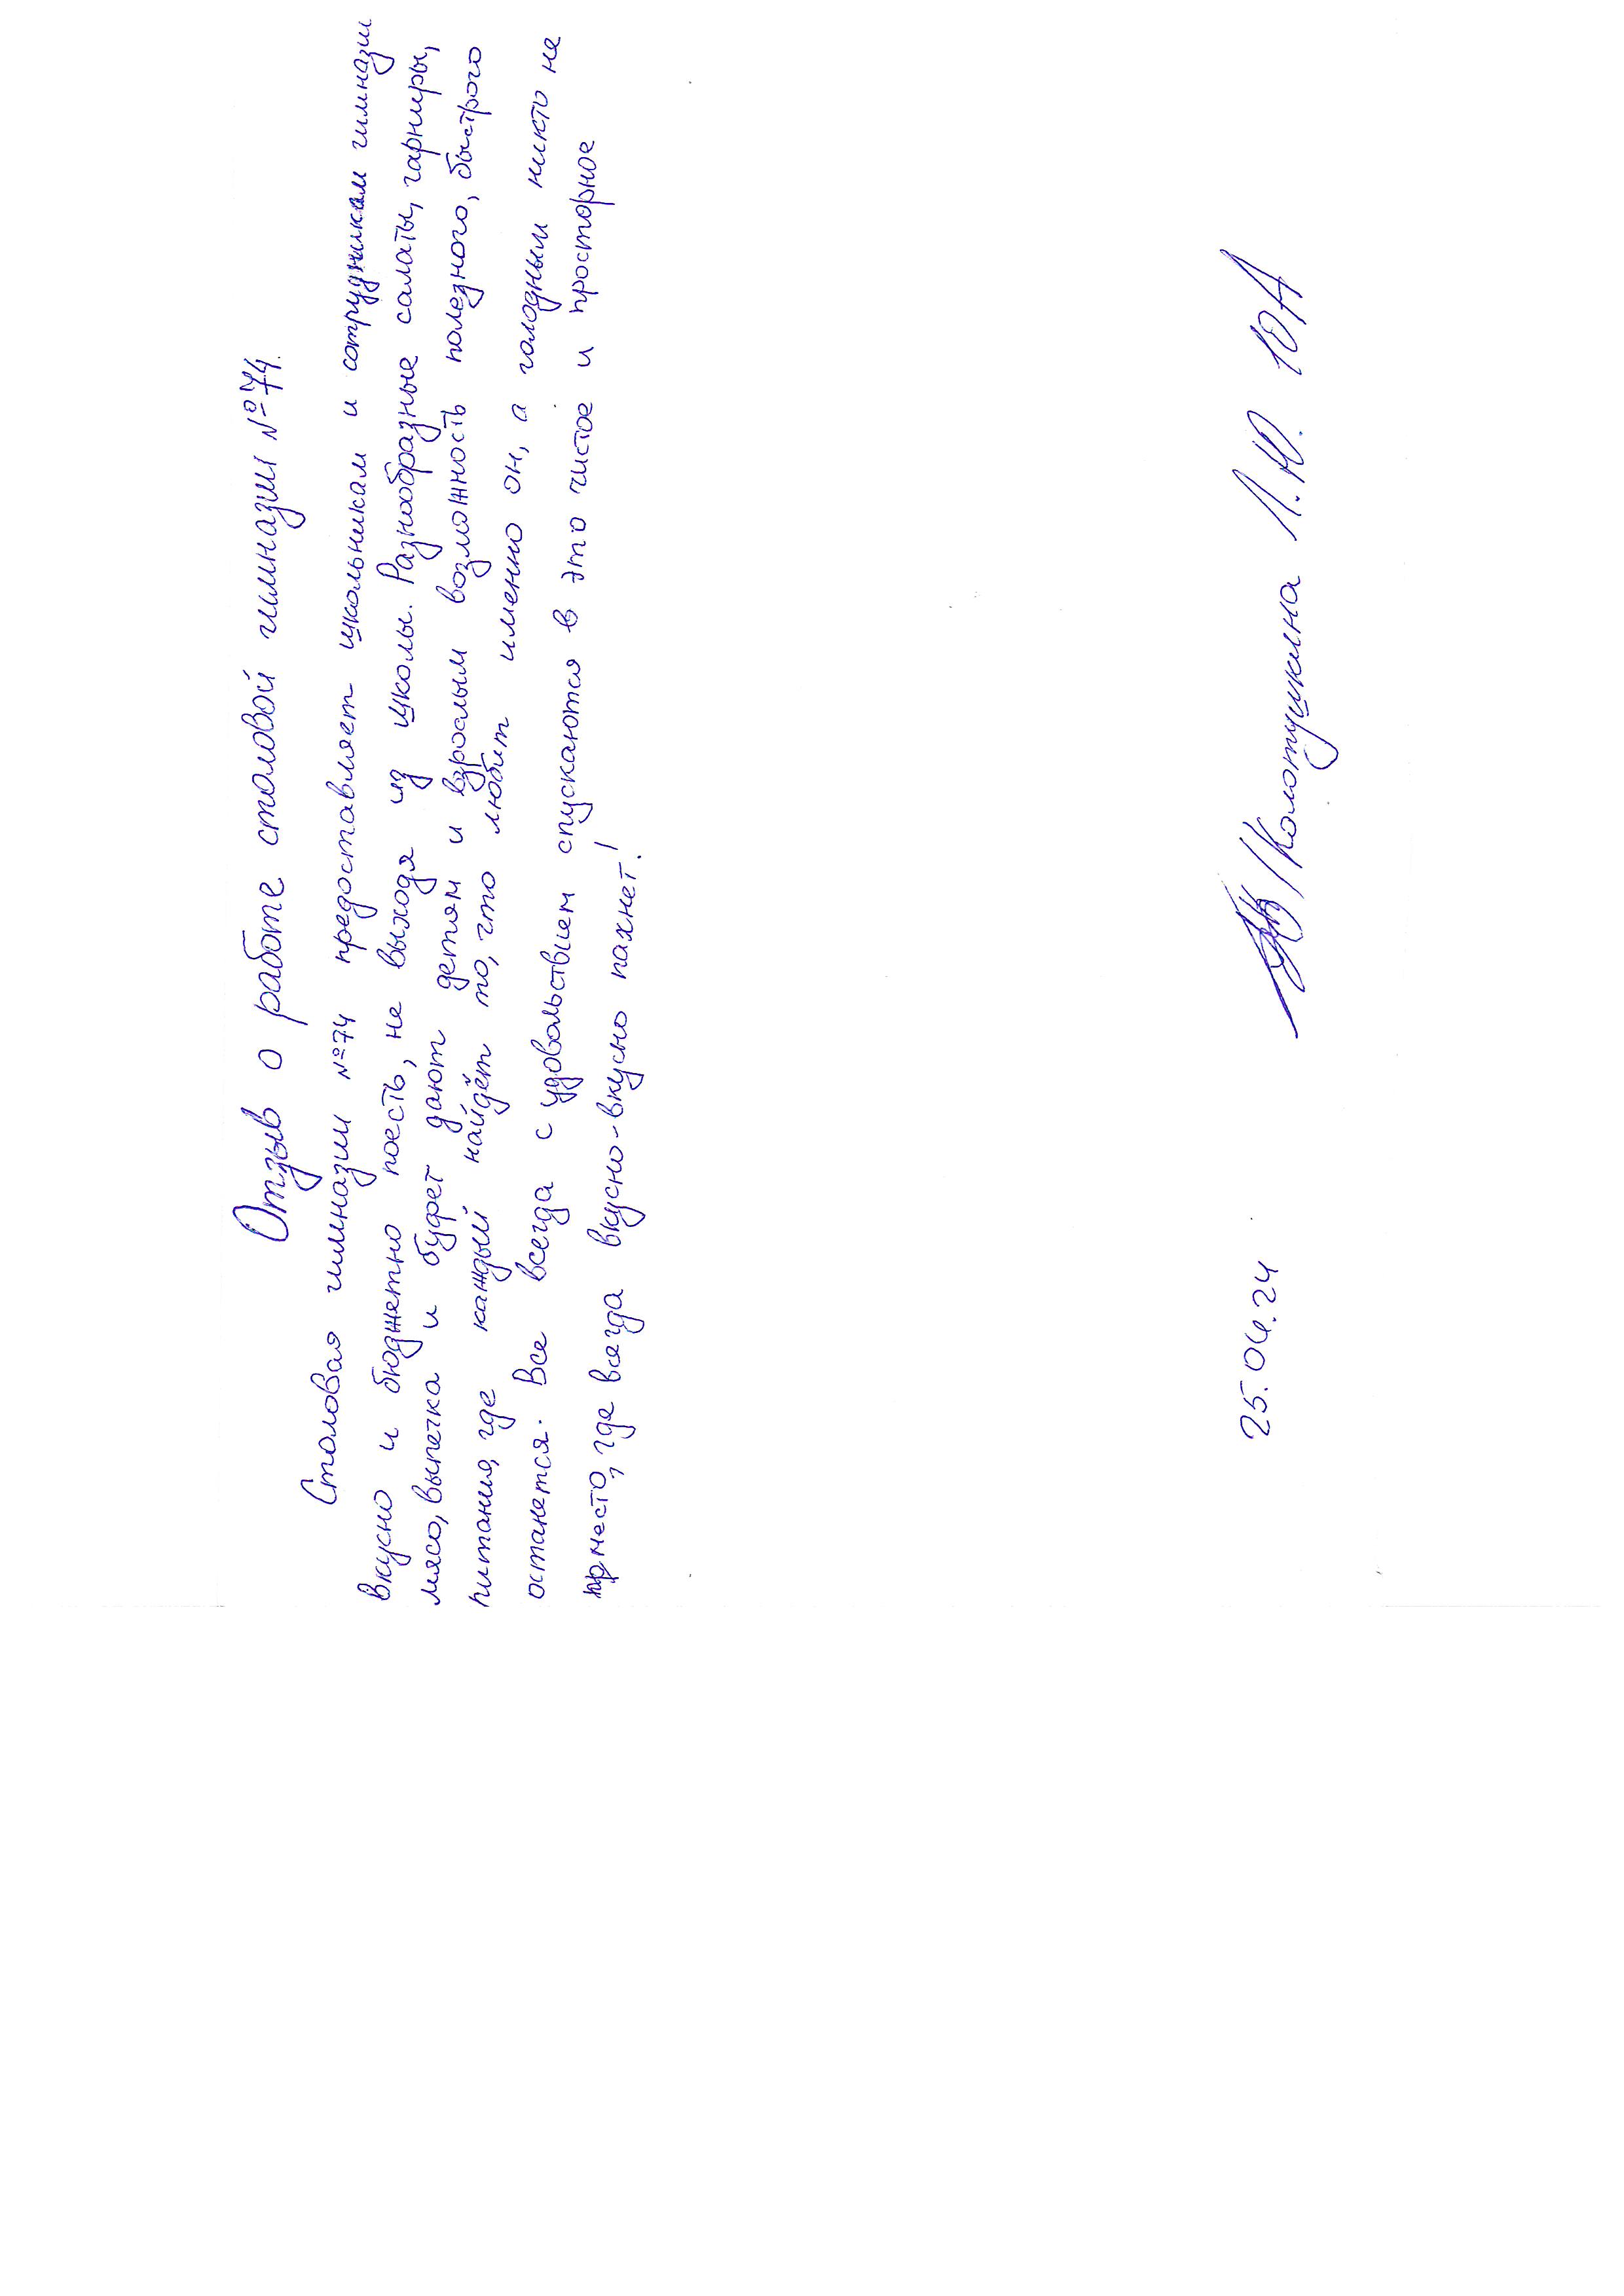 Отзыв о работе столовой гимназии №74.
Столовая гимназии №74 предоставляет школьникам и сотрудникам гимназии
вкусно и бюджетно поесть, не выходя из школы. Разнообразные салаты, гарниры,
мясо, выпечка и буфет дают детям и взрослым возможность полезного, быстрого
питания, где каждый найдёт то, что любит именно он, а голодным никто не
останется. Все всегда с удовольствием спускаются в это чистое и просторное
место, где всегда вкусно-вкусно пахнет!
25.04.24 /Колотушкина Л.Ю. 10А